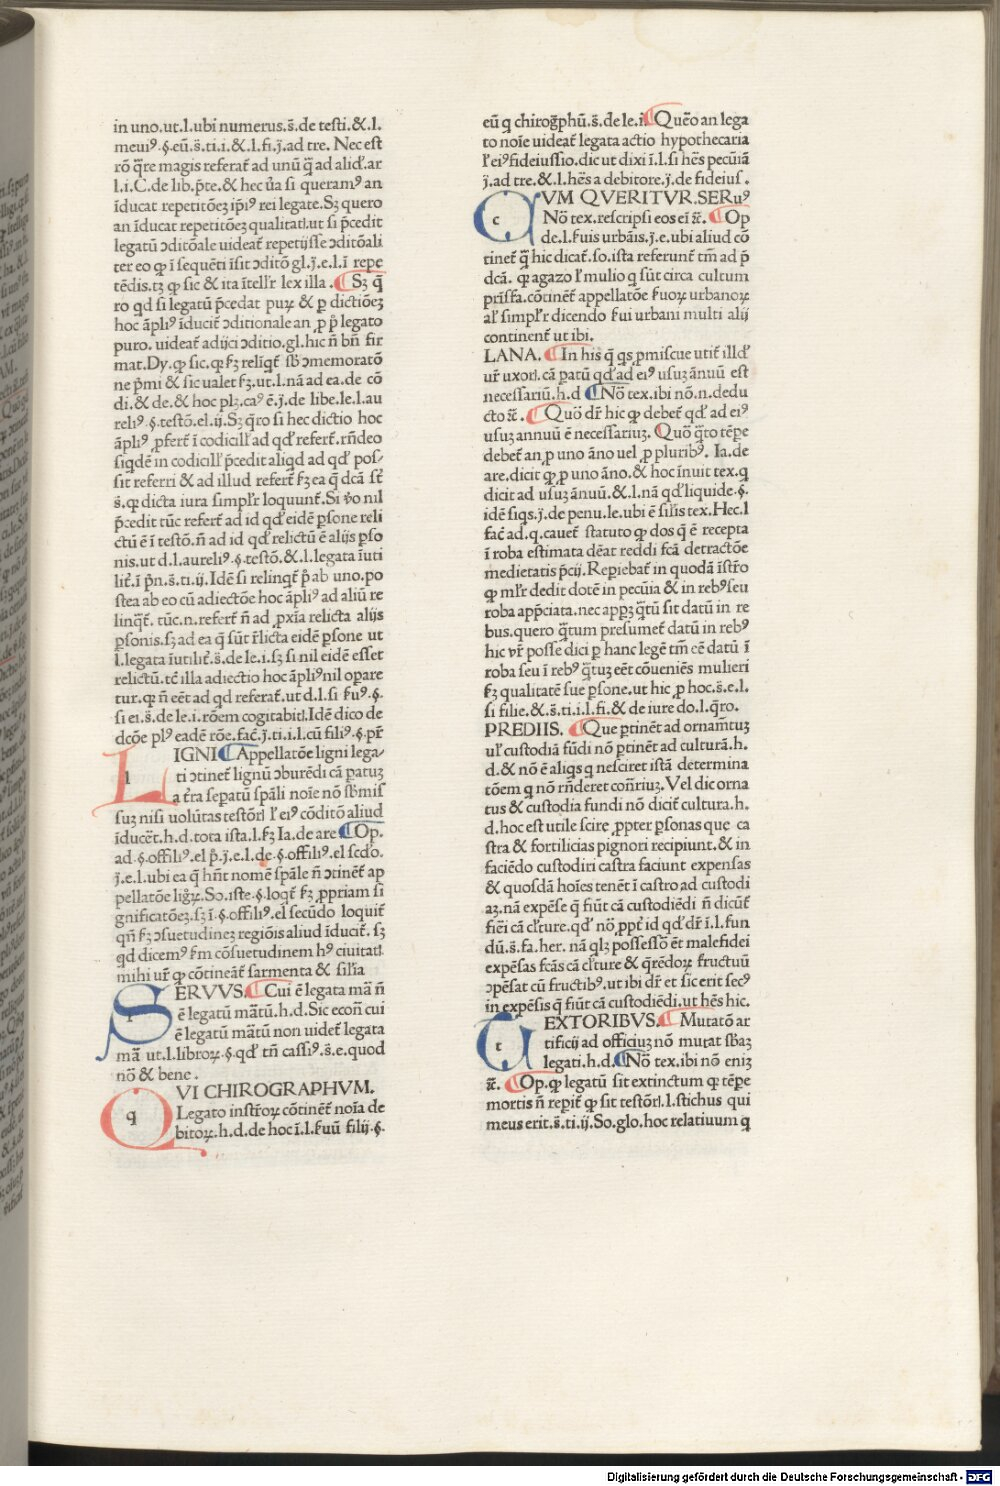 in uno.ut.l.ubi numerus.s̄.de testi.&.l.
meuiꝰ.§.eū.s̄.ti.i.&.l.fi.j.ad tre. Nec est
rō q̄re magis referat̄ ad unū q̄ ad aliđ.ar
l.i.C.de lib.p̄te.& hec ūa si queramꝰ an
īducat repetitōeꝫ ip̄iꝰ rei legate.Sꝫ quero
an īducat repetitōeꝫ qualitatꝭ.ut si p̄cedit
legatū ↄditōale uideat̄ repetijsse ↄditōali
ter eo ꝙ ī sequēti īsit ↄditō gl.j.e.l.ī repe
tēdis.tꝫ ꝙ sic & ita ītell'r lex illa. ¶Sꝫ q̄
ro qđ si legatū p̄cedat puꝝ & ꝑ dictiōeꝫ
hoc āpliꝰ īducit̄ ↄditionale an ꝓ p̄ legato
puro. uideat̄ adijci ↄditio.gl.hic n̄ bn̄ fir
mat.Dy.ꝙ sic.ꝙ fꝫ reliqt̄ sb̄ ↄmemoratō
ne p̄mi & sic ualet fꝫ.ut.l.nā ad ea.de cō
di.& de.& hoc plꝫ.caꝰ ē.j.de libe.le.l.au
reliꝰ.§.testō.el.ij.Sꝫ q̄ro si hec dictio hoc
āpliꝰ ꝓfert̄ ī codicill' ad qđ refert̄.rn̄deo
siqđē in codicill' p̄cedit aliqđ ad qđ pos/
sit referri & ad illud refert̄ fꝫ ea q̄ dcā st̄
s̄.ꝙ dicta iura simpl'r loquunt̄.Si ṽo nil
p̄cedit tūc refert̄ ad id qđ eidē ꝑsone reli
ctū ē ī testō.n̄ ad id qđ relictū ē alijs ꝑso
nis.ut d.l.aureliꝰ.§.testō.&.l.legata īuti
lit̄.ī p̄n.s̄.ti.ij.Idē si relinqt̄ p̄ ab uno.po
stea ab eo cū adiectōe hoc āpliꝰ ad aliū re
linqt̄. tūc.n.refert̄ n̄ ad ꝓxīa relicta alijs
ꝑsonis.sꝫ ad ea q̄ sūt r̄licta eidē ꝑsone ut
l.legata īutilit̄.s̄.de le.i.sꝫ si nil eidē esset
relictū.tc̄ illa adiectio hoc āpliꝰ nil opare
tur.ꝙ n̄ eet̄ ad qđ referat̄.ut d.l.si ẜuꝰ.§.
si ei.s̄.de le.i.rōem cogitabitꝭ.Idē dico de
dcōe plꝰ eadē rōe.fac̄.j.ti.i.l.cū filiꝰ.§.pr̄
LIGNI ¶Appellatōe ligni lega/
ti ↄtinet̄ lignū ↄburēdi cā patuꝫ
a t̄ra sepatū spāli noīe nō sb̄mis
suꝫ nisi uolūtas testōrꝭ l' eiꝰ cōditō aliud
īducet̄.h.d.tota ista.l.fꝫ Ia.de are ¶Op.
ad.§.offiliꝰ.el p̄.j.e.l.de.§.offiliꝰ.el scđo.
j.e.l.ubi ea q̄ hn̄t nomē spāle n̄ ↄtinet̄ ap
pellatōe lig̃ꝝ.So.iste.§.loqt̄ fꝫ ꝓpriam si
gnificatōeꝫ.sꝫ ī.§.offiliꝰ.el secūdo loquit̄
qn̄ fꝫ ↄsuetudineꝫ regiōis aliud īducit̄. sꝫ
qđ dicemꝰ ẜm cōsuetudinem hꝰ ciuitatꝭ
mihi ur̄ ꝙ cōtineāt̄ sarmenta & sil'ia
SERVVS. ¶Cui ē legata mā n̄
ē legatū mātū.h.d.Sic econ̄ cui
ē legatū mātū non uidet̄ legata
mā ut.l.libroꝝ.§.qđ tn̄ cassiꝰ.s̄.e.quod
nō & bene.
QVI CHIROGRAPHVM.
Legato instr̄oꝝ cōtinet̄ noīa de
bitoꝝ.h.d.de hoc ī.l.ẜuū filij.§.
eū q chirog̃phū.s̄.de le.i. ¶Quēo an lega
to noīe uideat̄ legata actio hypothecaria
l' eiꝰ fideiussio.dic ut dixi ī.l.si hēs pecūiā
j.ad tre.&.l.hēs a debitore.j.de fideius.
CVM QVERITVR.SERuꝰ
Nō tex.rescripsi eos eī &c̄. ¶Op
de.l.ẜuis urbāis.j.e.ubi aliud cō
tinet̄ q̄ hic dicat̄.so.ista referunt̄ tm̄ ad p̄
dcā. ꝙ agazo l' mulio q sūt circa cultum
prīs̄fa.cōtinēt̄ appellatōe ẜuoꝝ urbanoꝝ
al' simpl'r dicendo ẜui urbani multi alij
continent̄ ut ibi.
LANA. ¶In his q̄ qs ꝓmiscue utit̄ ill'đ
ur̄ uxorꝭ.cā patū qđ ad eiꝰ usuꝫ ānuū est
necessariū.h.d ¶Nō tex.ibi nō.n.dedu
cto &c̄. ¶Quō dr̄ hic ꝙ debet̄ qđ ad eiꝰ
usuꝫ annuū ē necessariuꝫ. Quō q̄to tēpe
debet̄ an ꝓ uno āno uel ꝓ pluribꝰ. Ia.de
are.dicit ꝙ ꝓ uno āno.& hoc īnuit tex.q
dicit ad usuꝫ ānuū.&.l.nā qđ liquide.§.
idē siqs.j.de penu.le.ubi ē sil'is tex.Hec.l
fac̄ ad.q.cauet̄ statuto ꝙ dos q̄ ē recepta
ī roba estimata dēat reddi fcā detractōe
medietatis p̄cij.Repiebat̄ in quodā īstr̄o
ꝙ ml'r dedit dotē in pecūia & in rebꝰ seu
roba app̄ciata.nec appꝫ q̄tū sit datū in re
bus.quero q̄tum presumet̄ datū in rebꝰ
hic ur̄ posse dici ꝑ hanc legē tm̄ eē datū ī
roba seu ī rebꝰ q̄tuꝫ eet̄ cōueniēs mulieri
fꝫ qualitatē sue ꝑsone.ut hic ꝓ hoc.s̄.e.l.
si filie.&.s̄.ti.i.l.fi.& de iure do.l.q̄ro.
PREDIIS. ¶Que ꝑtinēt ad ornam̄tuꝫ
ul' custodiā fūdi nō ꝑtinēt ad culturā.h.
d.& nō ē aliqs q nesciret istā determina
tōem q nō rn̄deret con̄riuꝫ.Vel dic orna
tus & custodia fundi nō dicit̄ cultura.h.
d.hoc est utile scire ꝓpter ꝑsonas que ca
stra & fortilicias pignori recipiunt.& in
faciēdo custodiri castra faciunt expensas
& quosdā hoīes tenēt ī castro ad custodi
aꝫ.nā expēse q̄ fiūt cā custodiēdi n̄ dicūt̄
fiēri cā cl'ture.qđ nō ꝓpt̄ id qđ dr̄ ī.l.fun
dū.s̄.fa.her. nā qlꝫ possessō ēt malefidei
expēsas fcās cā cl'ture & q̄rēdoꝝ fructuū
ↄpēsat cū fructibꝰ.ut ibi dr̄ et sic erit secꝰ
in expēsis q̄ fiūt cā custodiēdi.ut hēs hic.
TEXTORIBVS. ¶Mutatō ar
tificij ad officiuꝫ nō mutat sb̄aꝫ
legati.h.d. ¶Nō tex.ibi nō eniꝫ
&c̄. ¶Op.ꝙ legatū sit extinctum ꝙ tēpe
mortis n̄ repit̄ ꝙ sit testōrꝭ.l.stichus qui
meus erit.s̄.ti.ij.So.glo.hoc relatiuum q
Digitalisierung gefördert durch die Deutsche Forschungsgemeinschaft - DFG